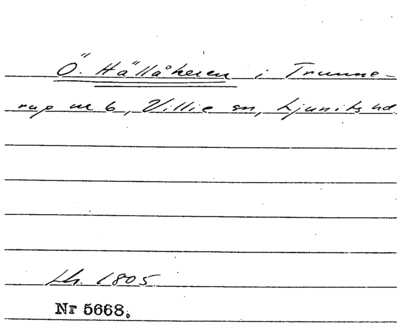 Ö. Hällåkeren i Trunne-
rup nr 6, Villie sn, Ljunits hd
Lh. 1805
Nr 5668.